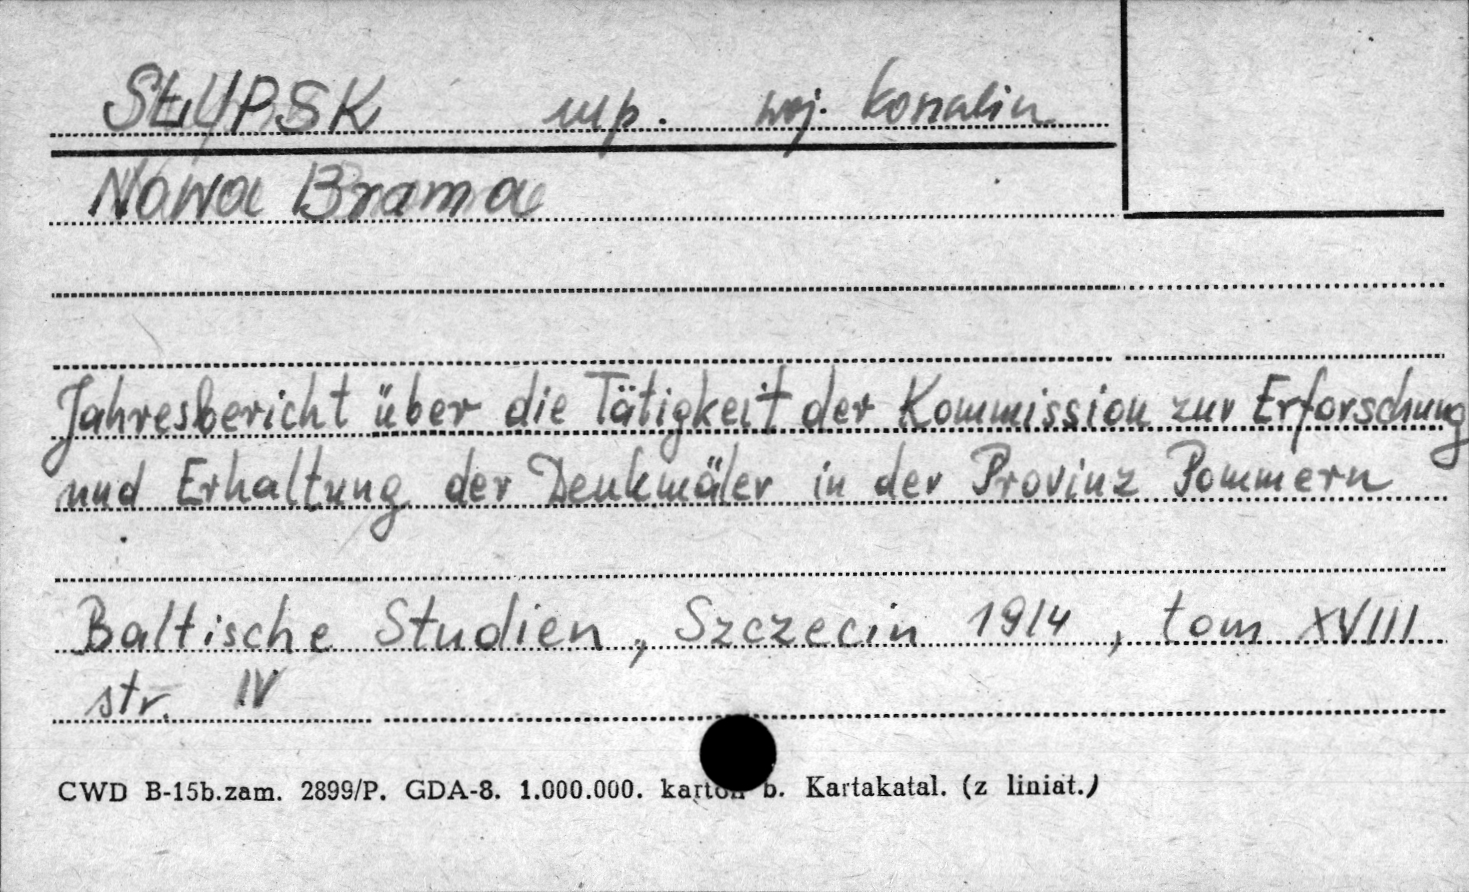 SŁUPSK mp. woj. koszalin
Nowa Brama
Jahresbericht über die Tätigkeit der Kommission zur Erforschung
und Erhaltung der Denkmäler in der Provinz Pommern
Baltische Studien, Szczecin 1914, tom XVIII
str. IV
CWD B-15b.zam. 2899/P. GDA-8. 1.000.000. karton b. Kartakatal. (z liniat.)